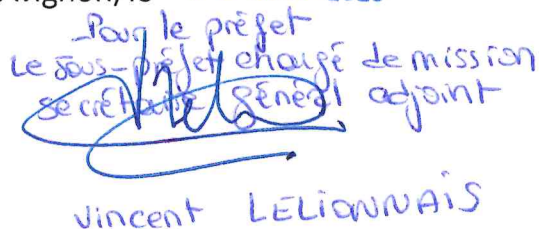 Avignon, le
Pour le préfet
Le sous-préfet chargé de mission
secrétaire général adjoint
Vincent LELIONNAIS